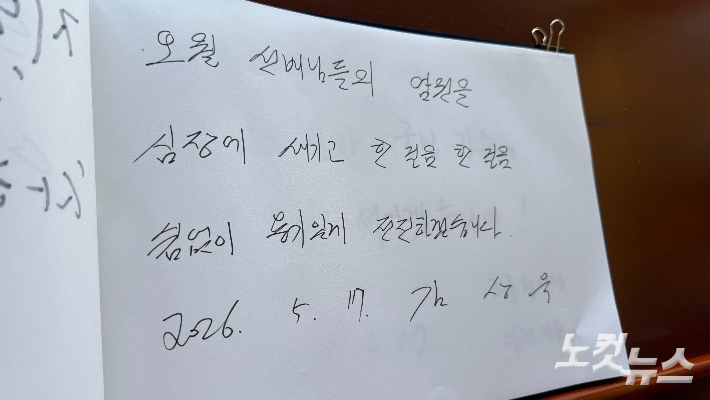 오월 선배님들의 염원을
심장에 새기고 한 걸음 한 걸음
쉼없이 용기있게 전진하겠습니다.
2026. 5. 17. 김상욱
노컷뉴스